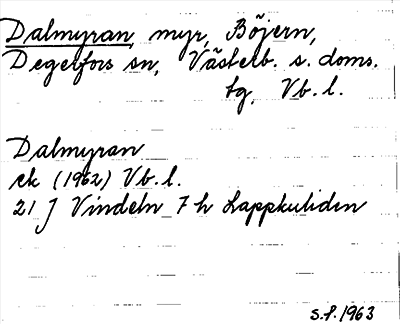 Dalmyran, myr, Böjern,
Degerfors sn, Västerb. s. doms.
tg, Vb. l.
Dalmyran
ek (1962) Vb. l.
21 J Vindeln 7 h Lappkuliden
S.F. 1963